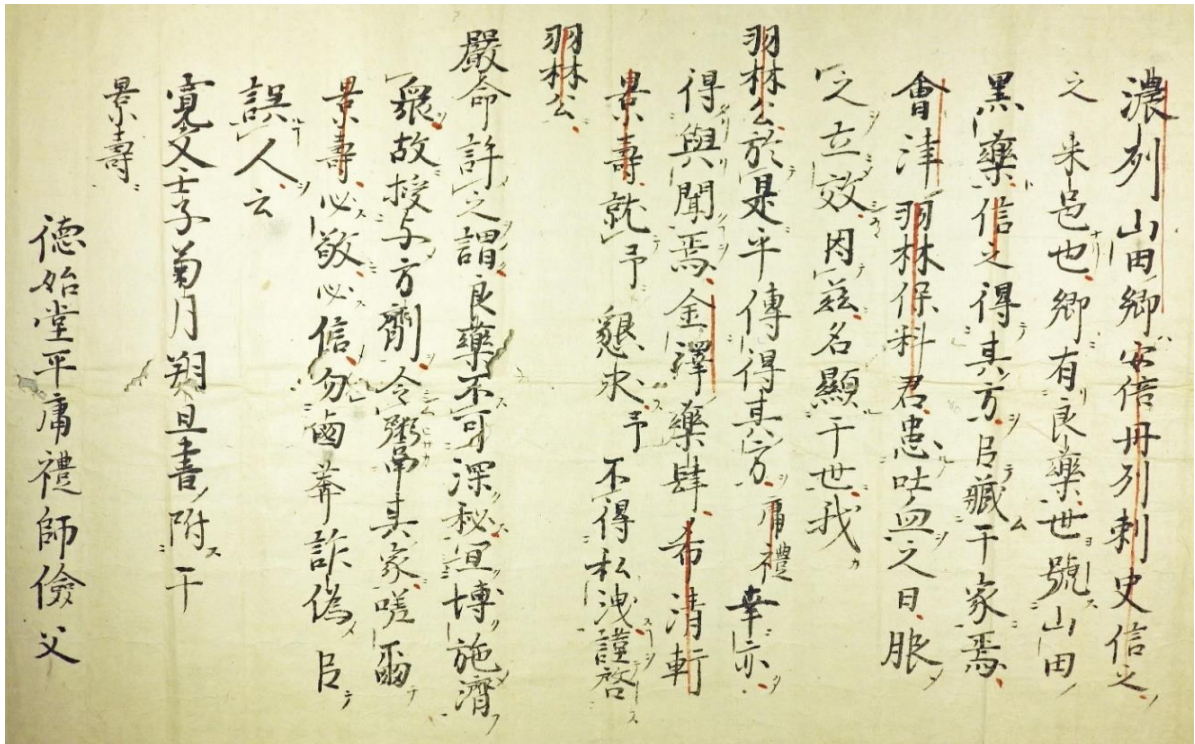 濃州山田郷安倍丹州刺史信之
之 来邑也郷有良薬世號山田
黒薬信之得其方㠯藏于家焉
會津羽林保科君患吐血之日服
之立效因茲名顯于世我
羽林公於是乎傳得其方庸禮幸亦
得與聞焉金澤薬肆希清軒
景壽就予懇求予不得私洩謹啓
羽林公
嚴命許之謂良薬不可深秘宜博施濟
衆故授与方劑令粥帋其家嗟爾
景壽必敬必信勿鹵莽詐偽㠯
誤人云
寛文壬子菊月朔旦書附于
景壽
德始堂平庸禮師儉父